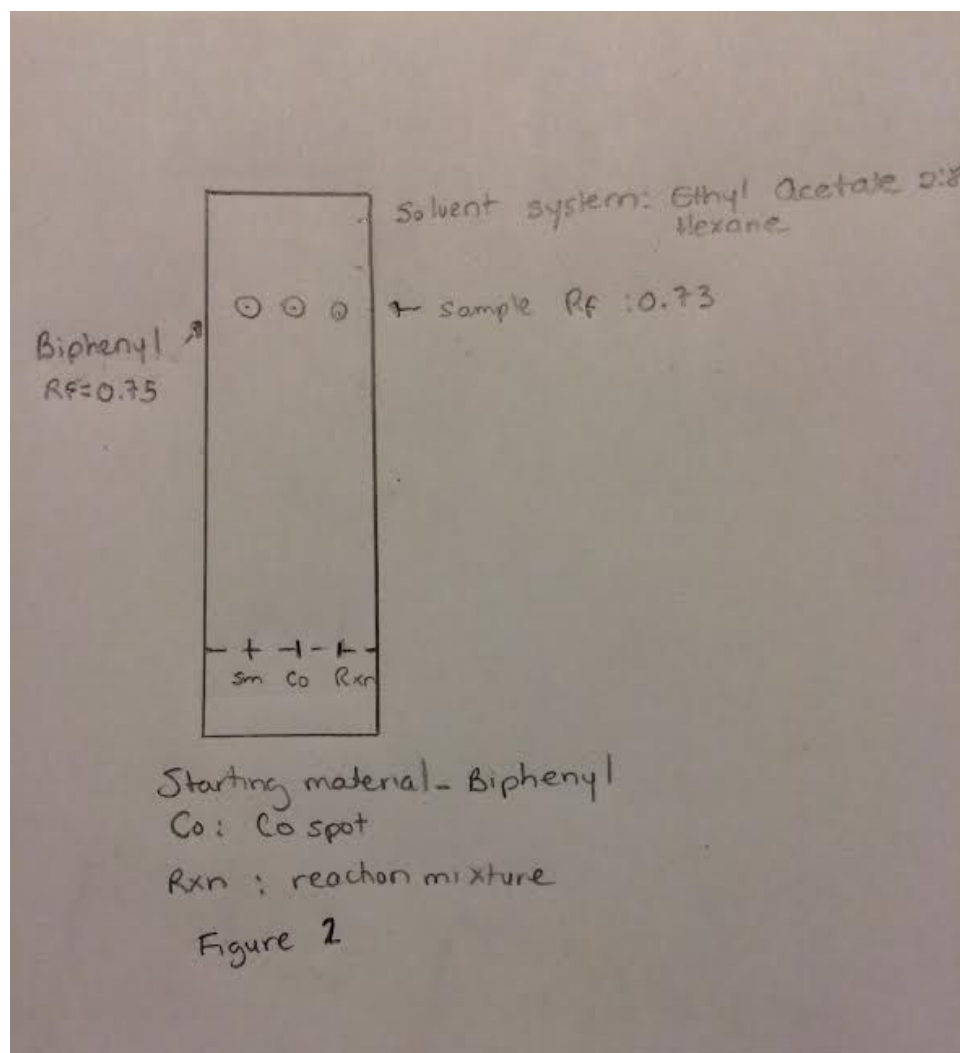 Solvent system: Ethyl Acetate 2:8
Hexane
← Sample Rf : 0.73
Biphenyl
Rf=0.75
Sm Co Rxn
Starting material - Biphenyl
Co : Co spot
Rxn : reaction mixture
Figure 2